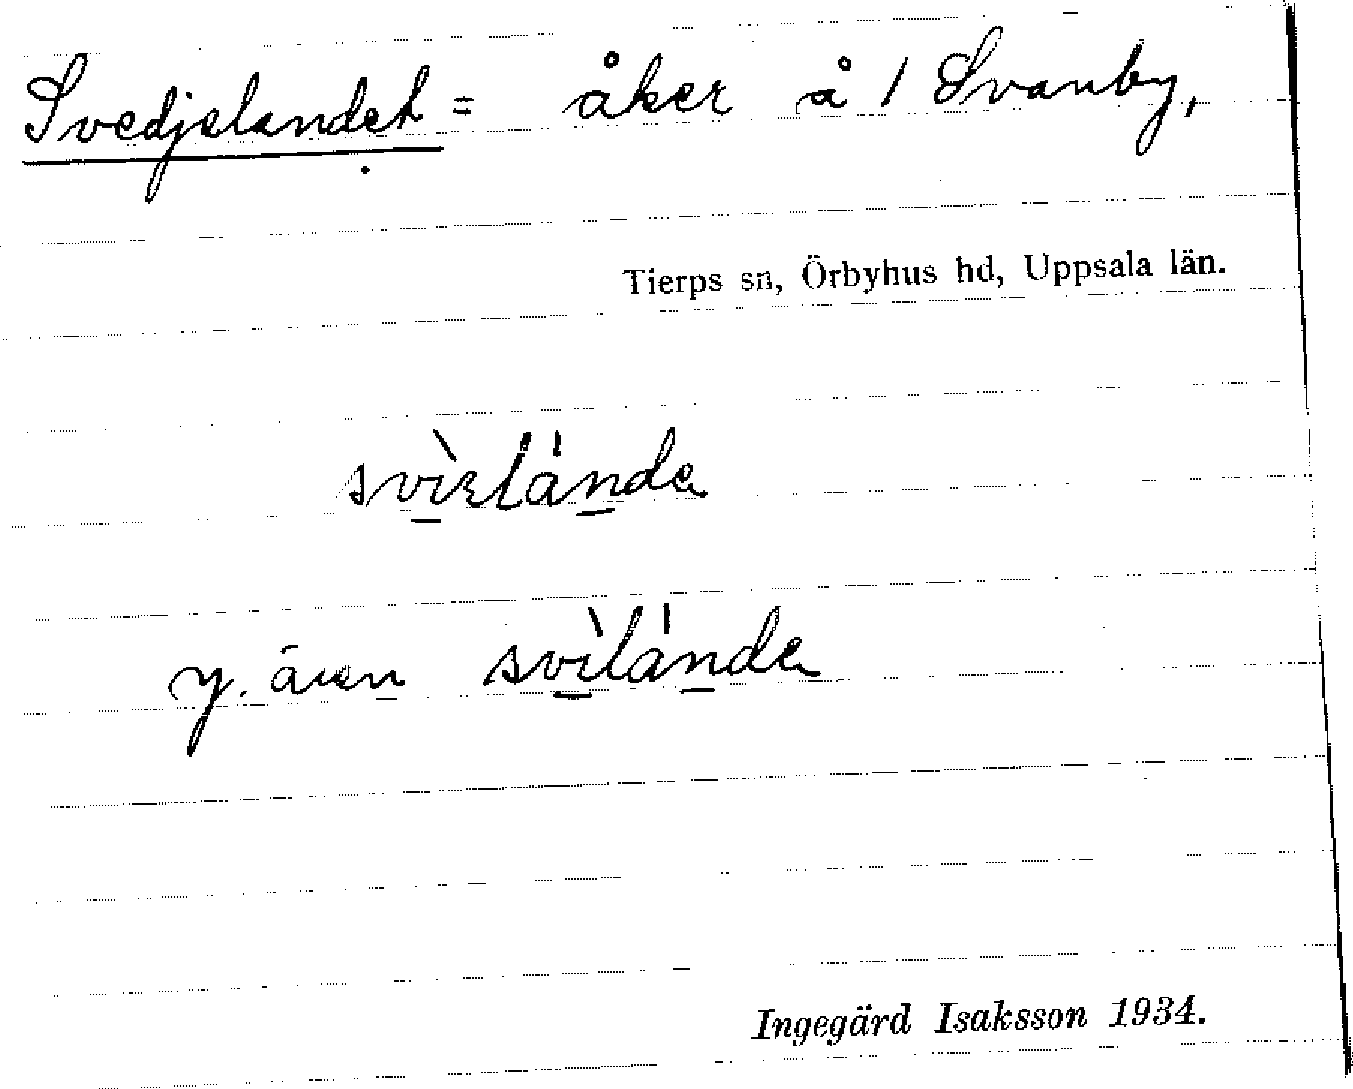 Svedjelandet = åker å 1 Svanby,
Tierps sn, Örbyhus hd, Uppsala län.
svìɛlánda
y. även svìlánda
Ingegärd Isaksson 1934.